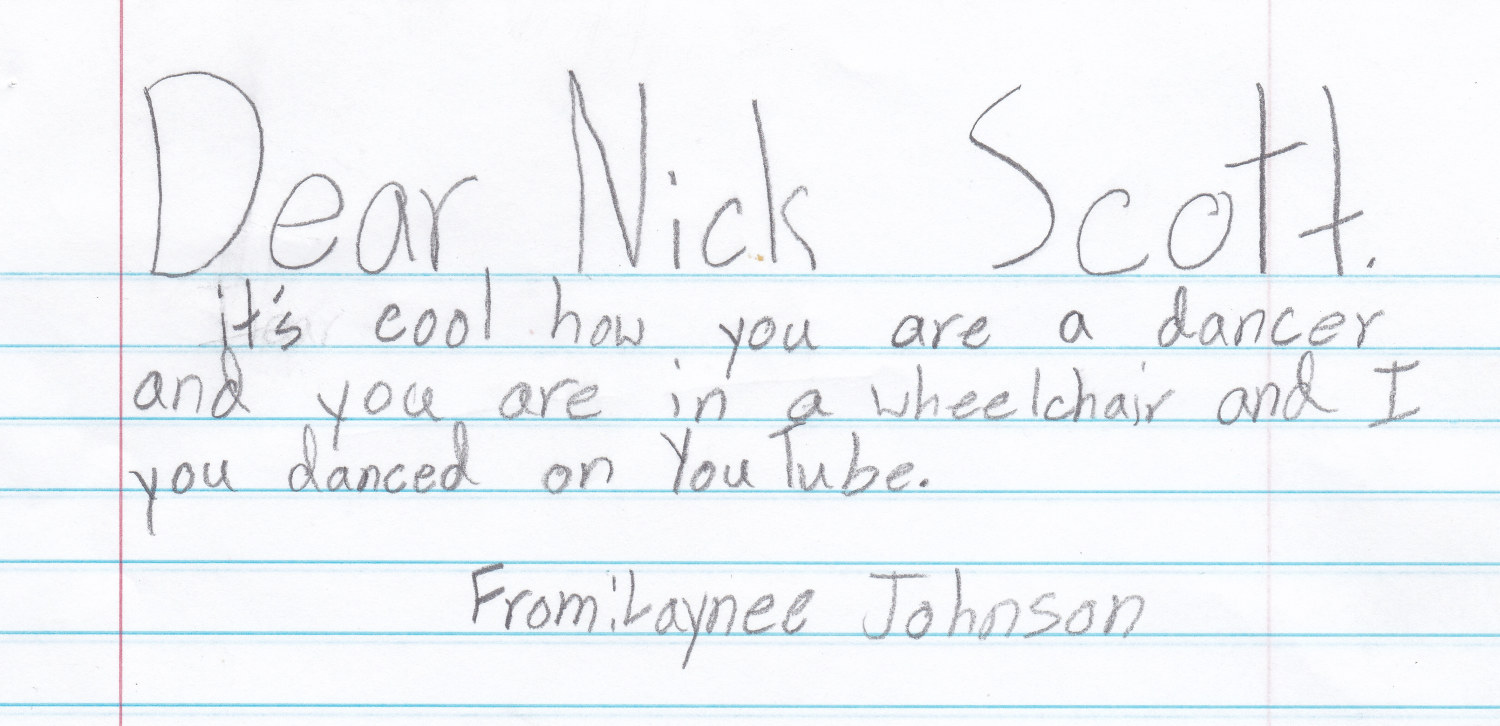 Dear, Nick Scott.
it's cool how you are a dancer
and you are in a wheelchair and I
you danced on YouTube.
From: Laynee Johnson